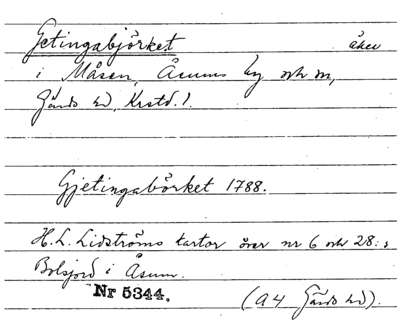 Getingabjörket åker
i Måsen, Åsums by och sn,
Gärds hd, Krstd. l.
Gjetingabörket 1788.
H. L. Lidströms kartor över nr 6 och 28:s
Bolsjord i Åsum.
Nr 5344.
(A 4 Gärds hd).